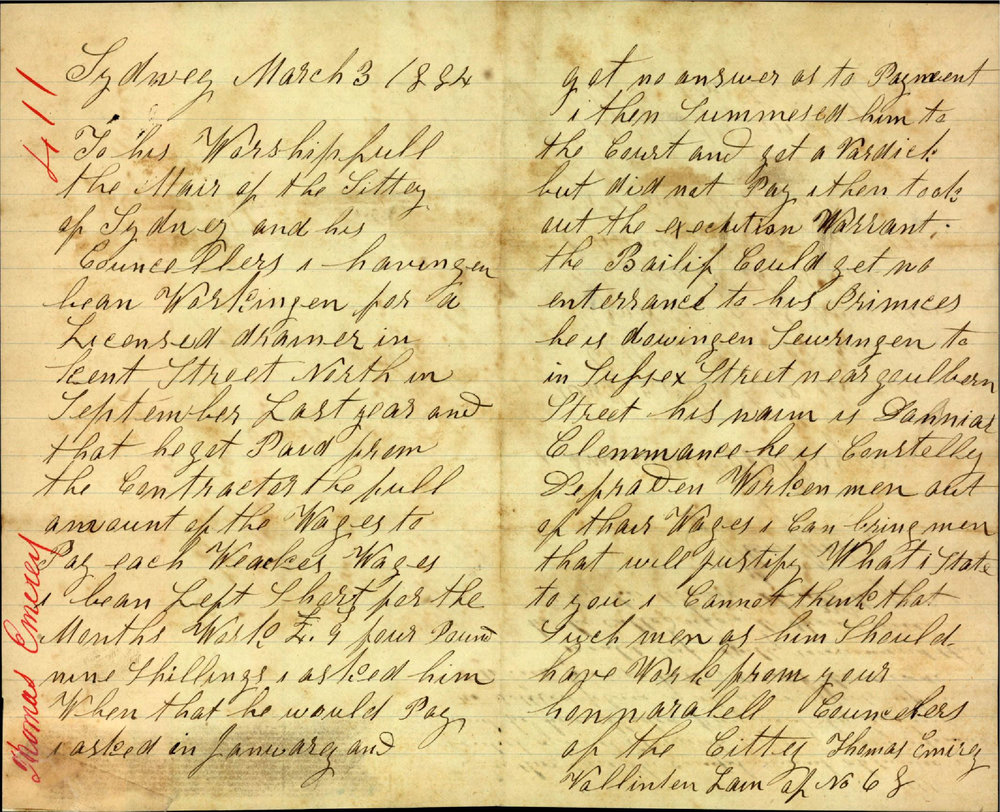 411
Sydney March 3 1884
To his Worshipfull
the Mair of the Sittey
of Sydney and his
Councellers i havingen
bean Workingen for a
Licensed drainer in
Kent Street North in
September Last year and
that he got Paid from
the Contractor the full
amount of the Wages to
Pay each Weackes Wages
i bean Left Short for the
Months Work £4. 9 four Pound
nine Shillings i asked him
When that he would Pay
i asked in Janwary and
Thomas Emerey
got no answer as to Payment
i then Summesed him to
the Court and got a Vardict
but did not Pay i then took
out the execution Warrant.
the Bailif Could get no
enterrance to his Primices
he is dowingen Sewringen to
in Sufsex Street near goulbern
Street his naim is Dannial
Clemmance he is Constelley
Defraden Worken men out
of thair Wages i Can bring men
that will justify What i State
to you i Cannot think that
Such men as him Should
have Work from your
honnarabell Councelers
of the Citty Thomas Emirey
Lain of No 68